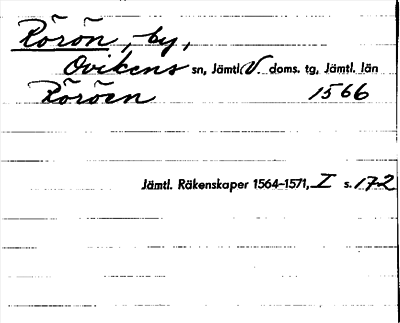 Rörön, by,
Ovikens sn, Jämtl. V. doms. tg, Jämtl. län
Röröen 1566
Jämtl. Räkenskaper 1564–1571, I s. 172